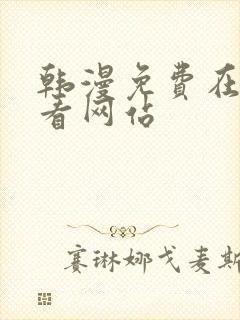 韩漫免费在
看网佔
赛琳娜戈麦斯